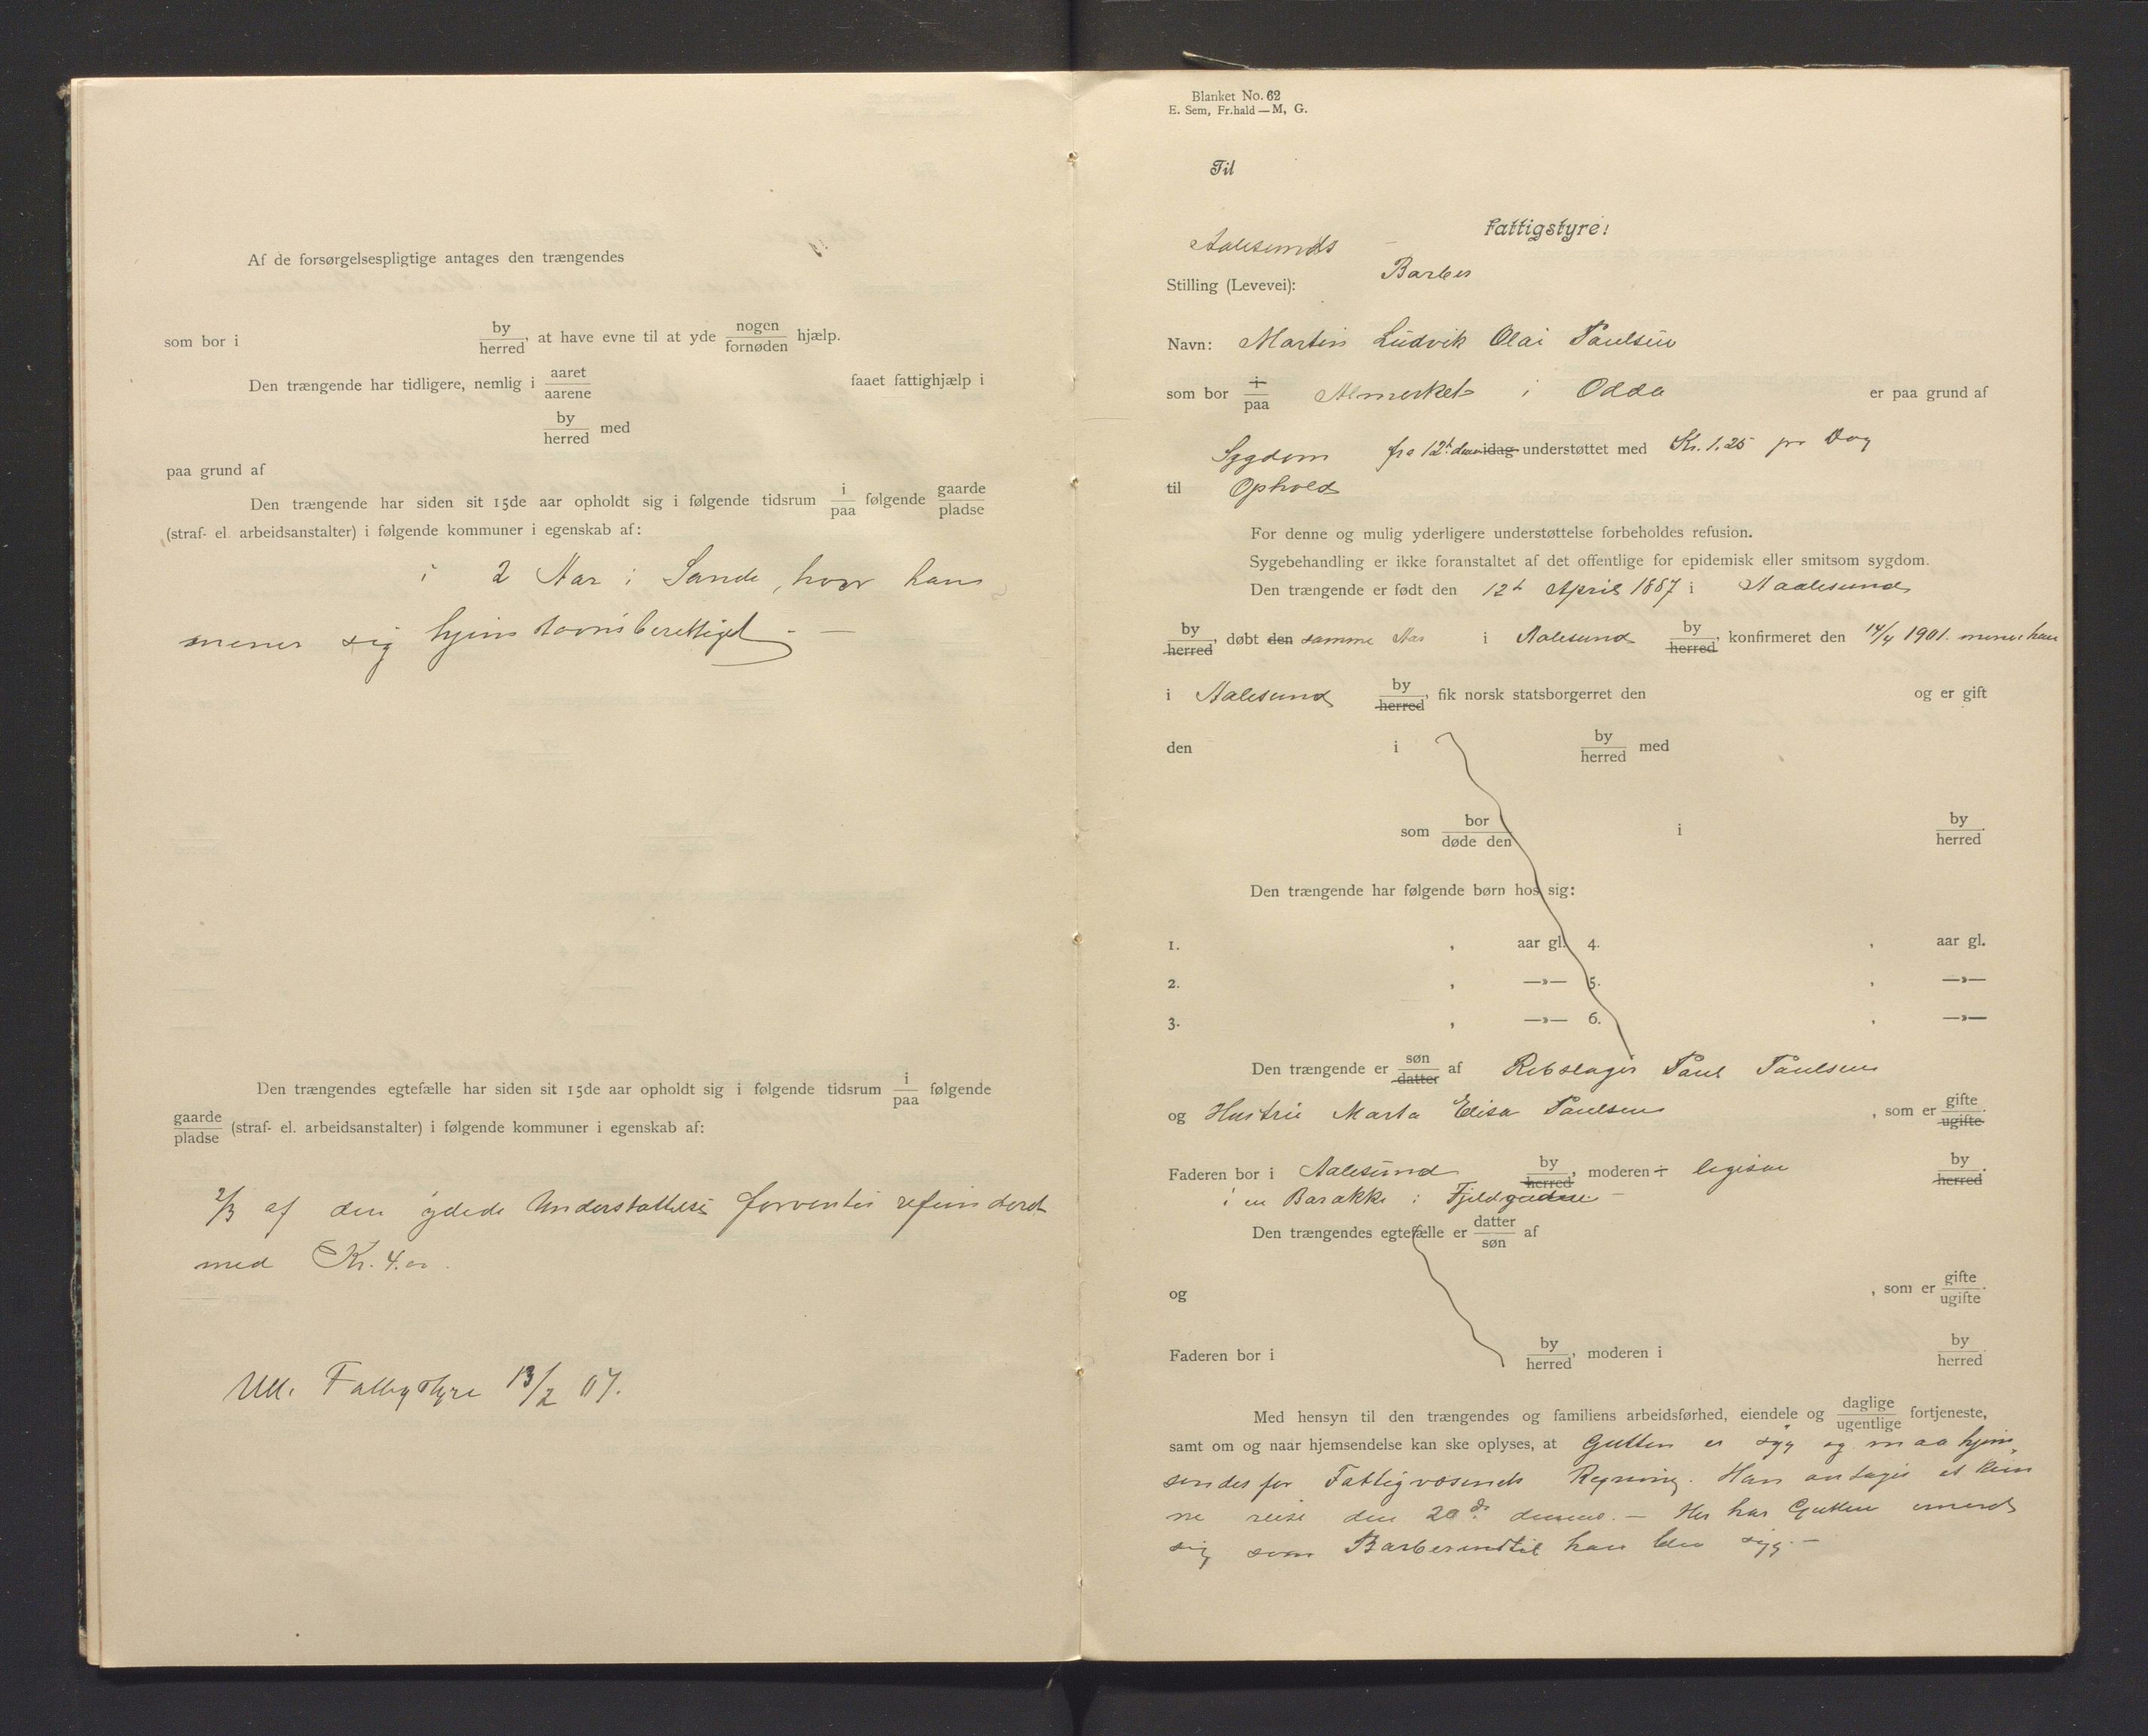 Af de forsørgelsespligtige antages den trængendes
som bor i by/herred, at have evne til at yde nogen/fornøden hjælp.
Den trængende har tidligere, nemlig i aaret/aarene faaet fattighjælp i
by/herred med
paa grund af
Den trængende har siden sit 15de aar opholdt sig i følgende tidsrum i/paa følgende gaarde/pladse
(straf- el. arbeidsanstalter) i følgende kommuner i egenskab af:
i 2 Aar i Sande, hvor han
mener sig hjemstavnsberettiget. —
Den trængendes egtefælle har siden sit 15de aar opholdt sig i følgende tidsrum i/paa følgende
gaarde/pladse (straf- el. arbeidsanstalter) i følgende kommuner i egenskab af:
2/3 af den ydede Understøttelse forventes refunderet
med Kr. 4.00.
Ull. Fattigstyre 13/2 07.
Blanket No. 62
E. Sem, Fr.hald — M, G.
Til
Aalesunds fattigstyre!
Stilling (Levevei): Barber
Navn: Martin Ludvik Olai Paulsen
som bor i/paa Almerket i Odda er paa grund af
Sygdom fra 12te idag understøttet med Kr. 1.25 pr Dag
til Ophold
For denne og mulig yderligere understøttelse forbeholdes refusion.
Sygebehandling er ikke foranstaltet af det offentlige for epidemisk eller smitsom sygdom.
Den trængende er født den 12te April 1887 i Aalesund
by/herred, døbt den samme Aar i Aalesund by/herred, konfirmeret den 14/4 1901. mener han
i Aalesund by/herred, fik norsk statsborgerret den og er gift
den i by/herred med
som bor/døde den i by/herred.
Den trængende har følgende børn hos sig:
1. , aar gl. 4. , aar gl.
2. , —»— 5. , —»—
3. , —»— 6. , —»—
Den trængende er søn/datter af Rebslager Paul Paulsen
og Hustru Marta Elisa Paulsen, som er gifte/ugifte.
Faderen bor i Aalesund by/herred, moderen i ligesaa by/herred.
i en Barakke i Fjeldgaden —
Den trængendes egtefælle er datter/søn af
og , som er gifte/ugifte.
Faderen bor i by/herred, moderen i by/herred.
Med hensyn til den trængendes og familiens arbeidsførhed, eiendele og daglige/ugentlige fortjeneste,
samt om og naar hjemsendelse kan ske oplyses, at Gutten er syg og maa hjem-
sendes for Fattigvæsenets Regning. Han antages at kun
ne reise den 20de dennes. — Her har Gutten ernæret
sig som Barber indtil han blev syg. —